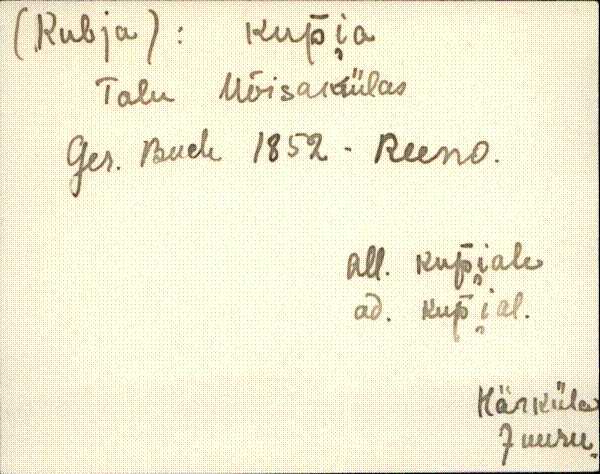 (Kubja): kup̄i̯a
Talu Mõisakülas
Ger. Buch 1852 - Reeno.
all. kup̄i̯ale
ad. kup̄i̯al.
Härküla
Juuru.